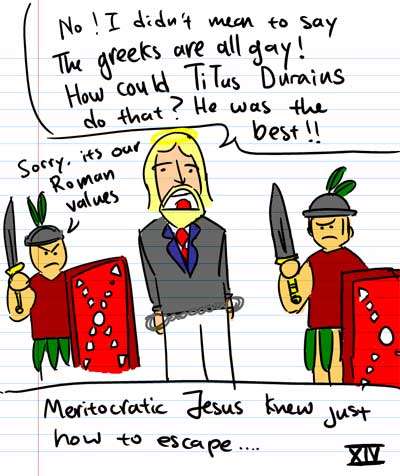 No! I didn't mean to say
The greeks are all gay!
How could TiTus Durains
do that? He was the
best!!
Sorry, its our
Roman
values
Meritocratic Jesus knew just
how to escape....
XIV